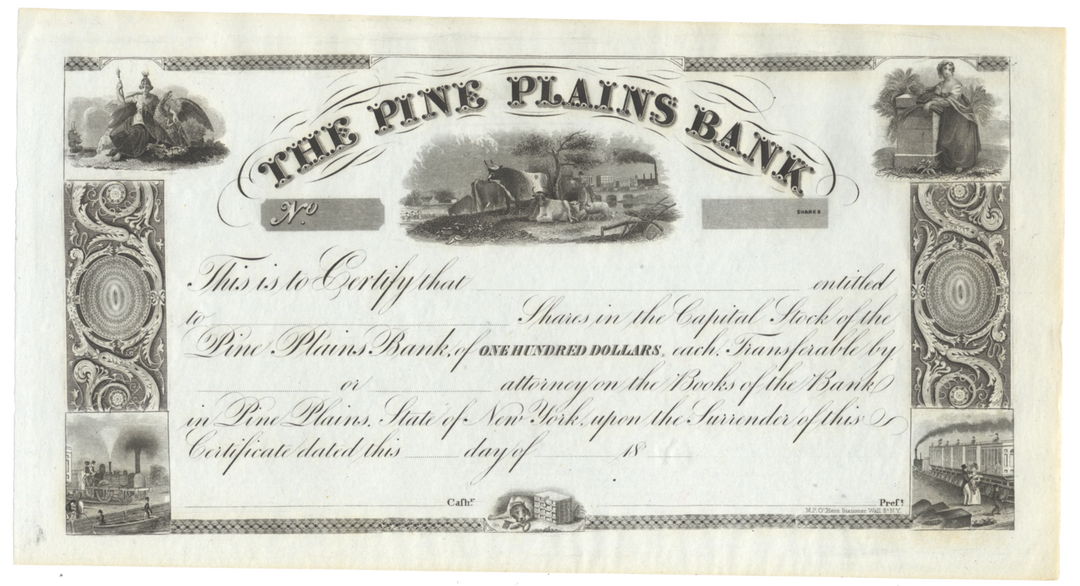 THE PINE PLAINS BANK
No
SHARES
This is to Certify that entitled
to Shares in the Capital Stock of the
Pine Plains Bank, of ONE HUNDRED DOLLARS, each, Transferable by
or attorney on the Books of the Bank
in Pine Plains, State of New York, upon the Surrender of this
Certificate dated this day of 18
Cashr. Prest.
Wall St. N.Y.